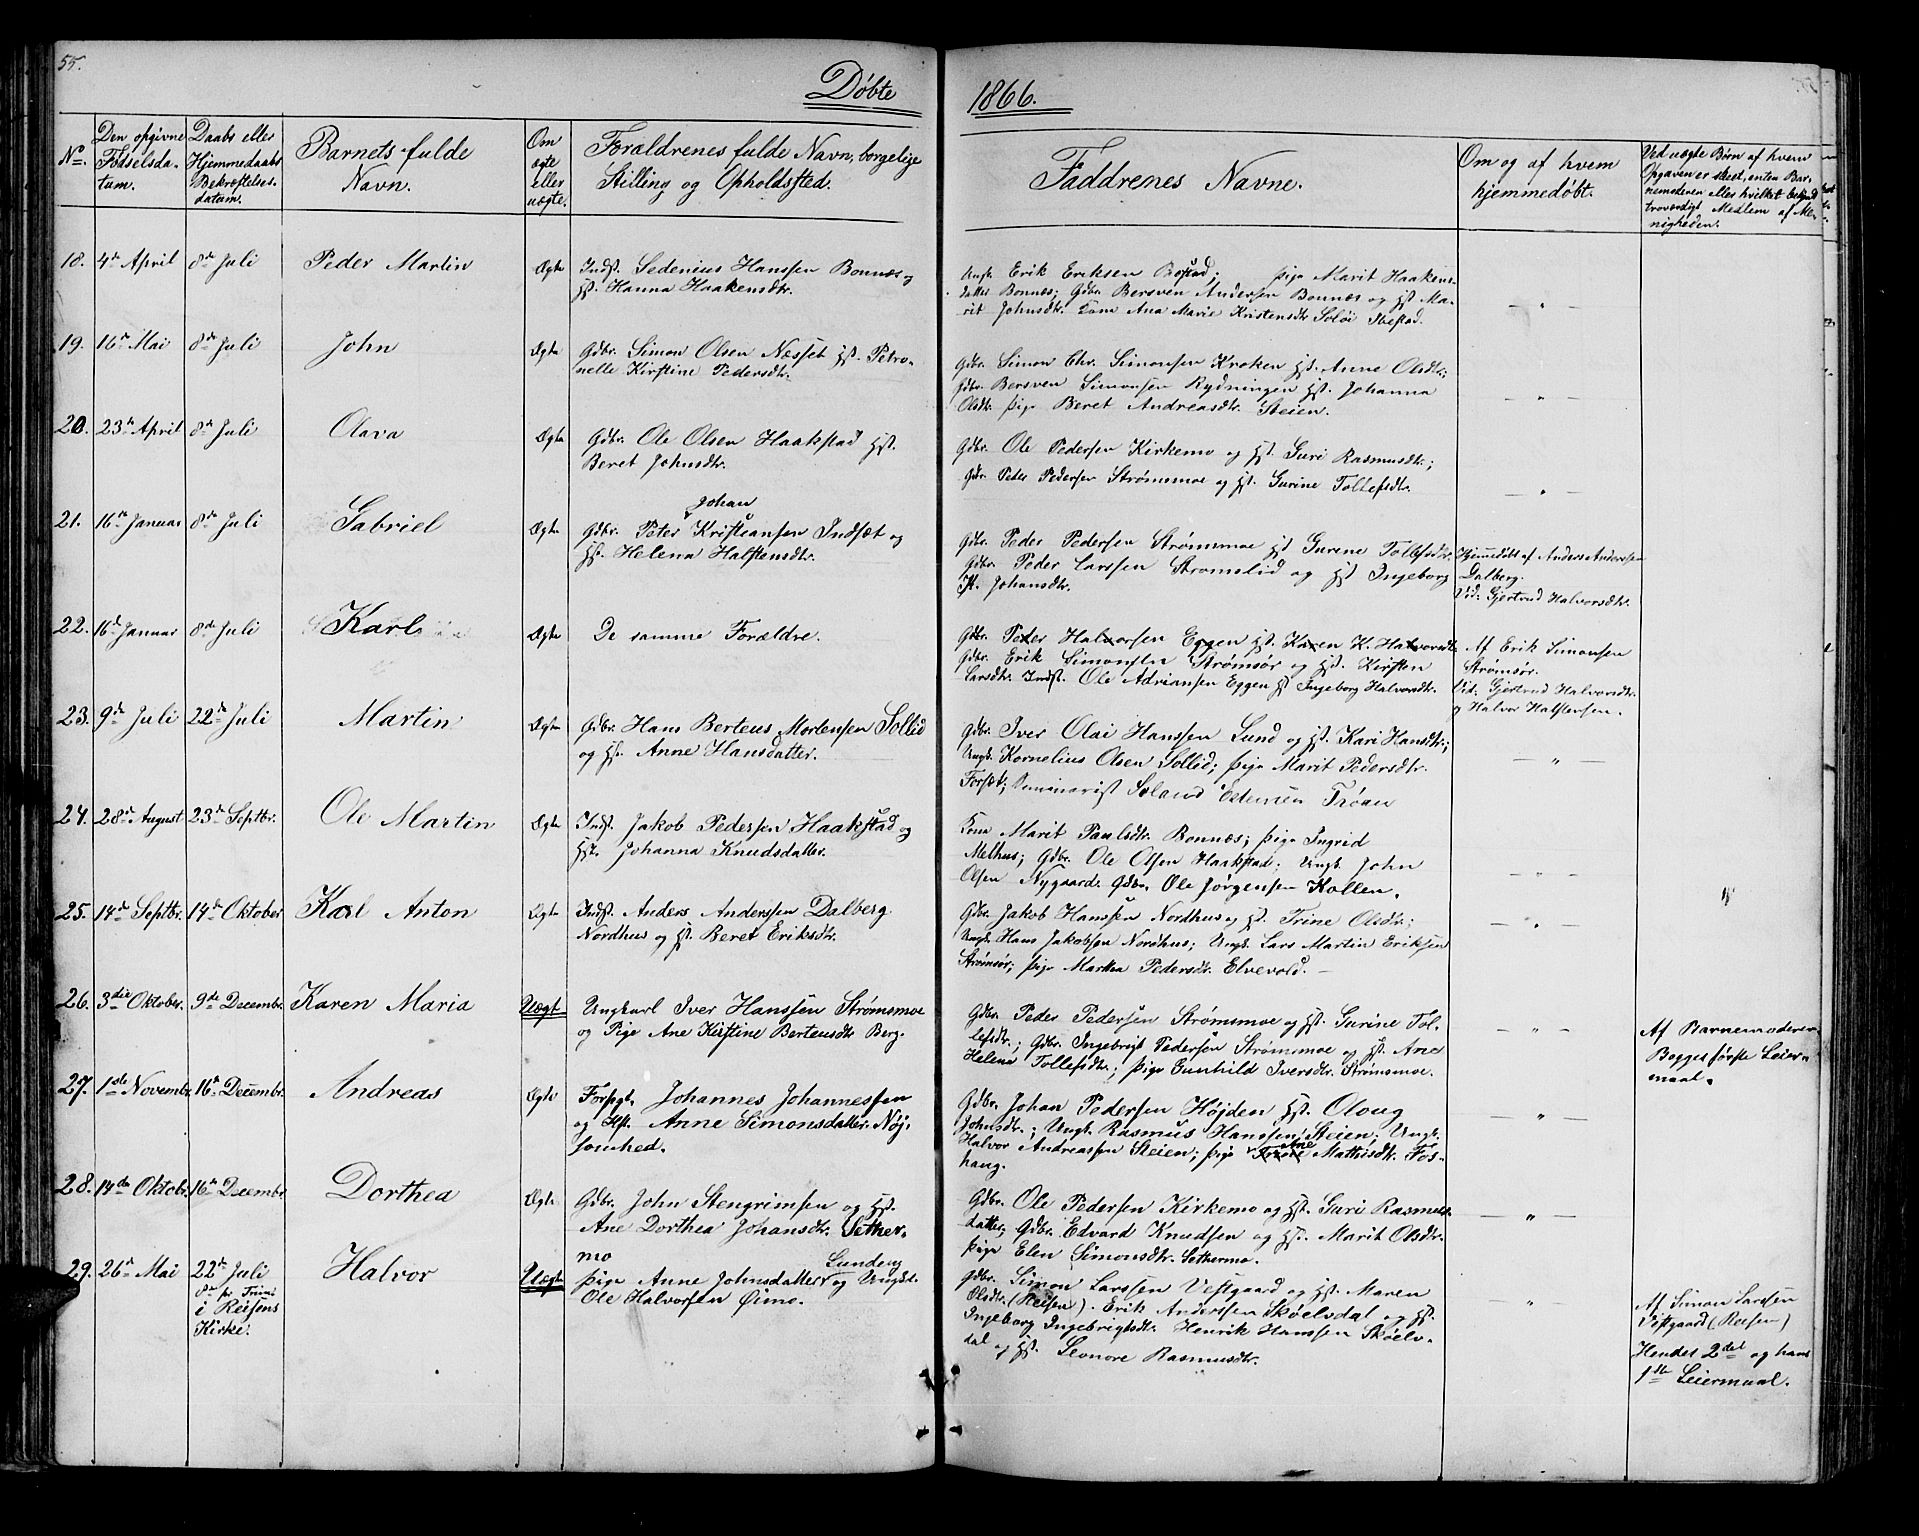 55.
Døbte
1866.
No.
Den opgivne Fødselsdatum.
Daabs eller Hjemmedaabs Bekræftelsesdatum.
Barnets fulde Navn.
Om ægte eller uægte.
Forældrenes fulde Navn, borgelige Stilling og Opholdssted.
Faddrenes Navne.
Om og af hvem hjemmedøbt.
Ved uægte Børn af hvem Opgaven er skeet, enten Barnemoderen eller hvilket bekjendt troværdigt Medlem af Menigheden.
18. 4de April 8de Juli Peder Martin Ægte Indst. Sedenius Hanssen Bonnæs og
Hst. Hanna Haakensdtr.
Ungk. Erik Eriksen Bostad; Pige Marit Haakens-
datter Bonnæs; Gdbr. Bersven Andersen Bonnæs og Hst. Ma-
rit Johnsdtr. Kone Ana Marie Kristensdtr Soløi Ibestad.
— " —
19. 16de Mai 8de Juli John Ægte Gdbr. Simon Olsen Næsset Hst. Petro-
nelle Kirstine Pedersdtr.
Gdbr. Simon Chr. Simonsen Kroken Hst. Anne Olsdtr;
Gdbr. Bersven Simonsen Rydningen Hst. Johanna
Olsdtr. Pige Beret Andreasdtr. Steien.
— " —
20. 23de April 8de Juli Olava Ægte Gdbr. Ole Olsen Haakstad Hst.
Beret Johnsdtr.
Gdbr. Ole Pedersen Kirkemo og Hst. Guri Rasmusdtr.;
Gdbr. Peder Pedersen Strømsmoe og Hst. Gurine Tollefsdtr.
— " —
21. 16de Januar 8de Juli Gabriel Ægte
Johan
Gdbr. Peter Kristiansen Indsæt og
Hst. Helena Halstensdtr.
Gdbr. Peder Pedersen Strømsmoe Hst Gurine Tollefsdtr.
Gdbr. Peder Larssen Strømslid og Hst Ingeborg
K. Johansdtr.
Hjemmedøbt af Anders Anderssen
Dalberg.
Vid: Gjertrud Halvorsdtr.
22. 16de Januar 8de Juli Karl Ægte De samme Forældre.
Gdbr. Peder Halvorsen Eggen Hst. Karen K. Halvorsdtr
Gdbr. Erik Simonsen Strømsør og Hst. Kirsten
Larsdtr. Indst. Ole Adriansen Eggen Hst Ingeborg Halvorsdtr.
Af Erik Simonsen
Strømsør.
Vid. Gjertrud Halvorsdtr.
og Halvor Halstensen.
23. 9de Juli 22de Juli Martin Ægte Gdbr. Hans Berteus Mortensen Sollid
og Hst. Anne Hansdatter.
Gdbr. Iver Olai Hanssen Lund og Hst. Kari Hansdtr;
Ungk. Kornelius Olsen Sollid; Pige Marit Pedersdtr.
Forsæt; Seminarist Troan
— " —
24. 28de August 23de Septbr. Ole Martin Ægte Indst. Jakob Pedersen Haakstad og
Hst. Johanna Knudsdatter.
Kone Marit Paulsdtr. Bonnæs; Pige Ingrid
Melhus; Gdbr. Ole Olsen Haakstad; Ungk. John
Olsen Nygaard. Gdbr. Ole Jørgensen Kollen.
— " —
25. 14de Septbr. 14de Oktober Karl Anton Ægte Indst. Anders Anderssen Dalberg
Nordhus og Hst. Beret Eriksdtr.
Gdbr. Jakob Hanssen Nordhus og Hst. Trine Olsdtr.;
Ungk. Hans Jakobsen Nordhus; Ungk. Lars Martin Eriksen
Strømsør; Pige Martha Pedersdtr. Elvevold. —
— " —
26. 3die Oktober. 9de Decembr. Karen Maria Uægt. Ungkarl Iver Hanssen Strømsmoe
og Pige Ane Kirstine Berteusdtr Berg.
Gdbr. Peder Pedersen Strømsmoe og Hst. Gurine Tol-
lefsdtr.; Gdbr. Ingebrigt Pedersen Strømsmoe og Hst. Ane
Helena Tollefsdtr.; Pige Gunhild Iversdtr. Strømsmoe.
— " —
Af Barnemoderen
Begges første Leier-
maal.
27. 1ste Novembr. 16de Decembr. Andreas Ægte Forpgt. Johannes Johannessen
og Hst. Anne Simonsdatter. Nøj-
somhed.
Gdbr. Johan Pedersen Højden Hst. Oloug
Johnsdtr.; Ungk. Rasmus Hanssen Steien; Ungk.
Halvor Andreassen Steien; Pige Ane Mathisdtr. Fos-
haug.
— " —
28. 14de Oktobr. 16de Decembr. Dorthea Ægte Gdbr. John Stengrimsen og Hst.
Ane Dorthea Johansdtr. Sether-
mo
Gdbr. Ole Pedersen Kirkemo og Hst. Guri Rasmus-
datter; Gdbr. Edvard Knudsen og Hst. Marit Olsdtr.
Pige Elen Simonsdtr. Sethermo.
— " —
29. 26de Mai 22de Juli
8de p. Trini
i Reisens
Kirke.
Halvor Uægte
Lundeng
Pige Anne Johnsdatter og Ungk.
Ole Halvorsen Øimo.
Gdbr. Simon Larssen Vestgaard og Hst. Maren
Olsdtr. (Reisen). Erik Anderssen Skøelsdal og Hst.
Ingeborg Ingebrigtsdtr. Henrik Hanssen Skøelv-
dal og Hst. Leonore Rasmusdtr.
— " —
Af Simon Larssen
Vestgaard (Reisen)
Hendes 2det og hans
1ste Leiermaal.